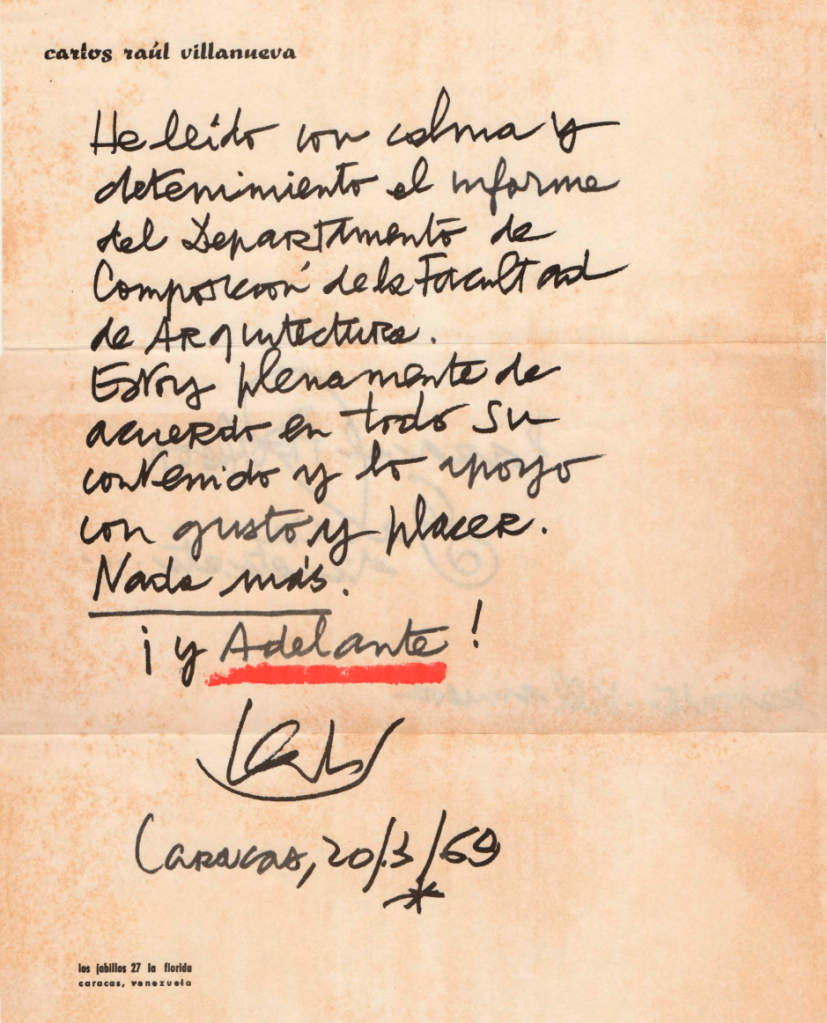 carlos raúl villanueva
He leído con calma y
detenimiento el informe
del Departamento de
Composición de la Facultad
de Arquitectura.
Estoy plenamente de
acuerdo en todo su
contenido y lo apoyo
con gusto y placer.
Nada más.
¡y Adelante!
Caracas, 20/3/69
*
los jabillos 27 la florida
caracas, venezuela